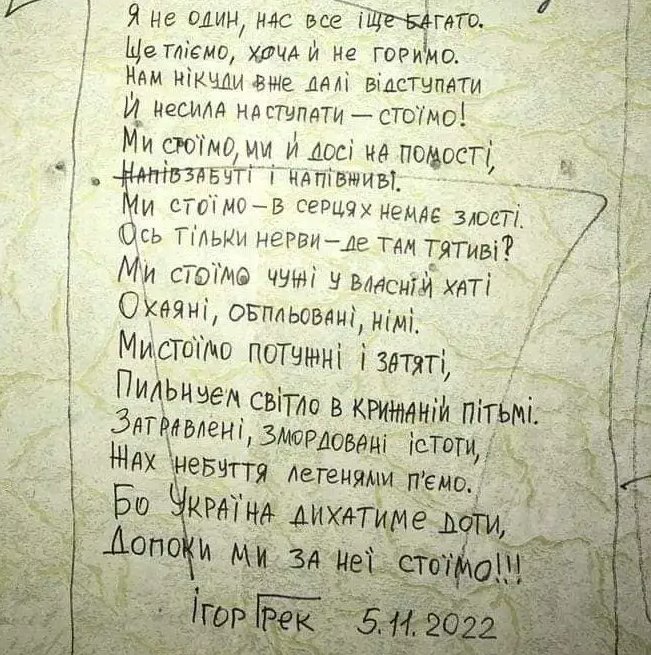 Я не один, нас все іще багато.
Ще тліємо, хоча й не горимо.
Нам нікуди вже далі відступати
Й несила наступати — стоїмо!
Ми стоїмо, ми й досі на помості,
Напівзабуті і напівживі.
Ми стоїмо — в серцях немає злості.
Ось тільки нерви — де там тятиві?
Ми стоїмо чужі у власній хаті
Охаяні, обпльовані, німі.
Ми стоїмо потужні і затяті,
Пильнуєм світло в крижаній пітьмі.
Затравлені, змордовані істоти,
Жах небуття легенями п'ємо.
Бо Україна дихатиме доти,
Допоки ми за неї стоїмо!!!
Ігор Грек 5.11.2022